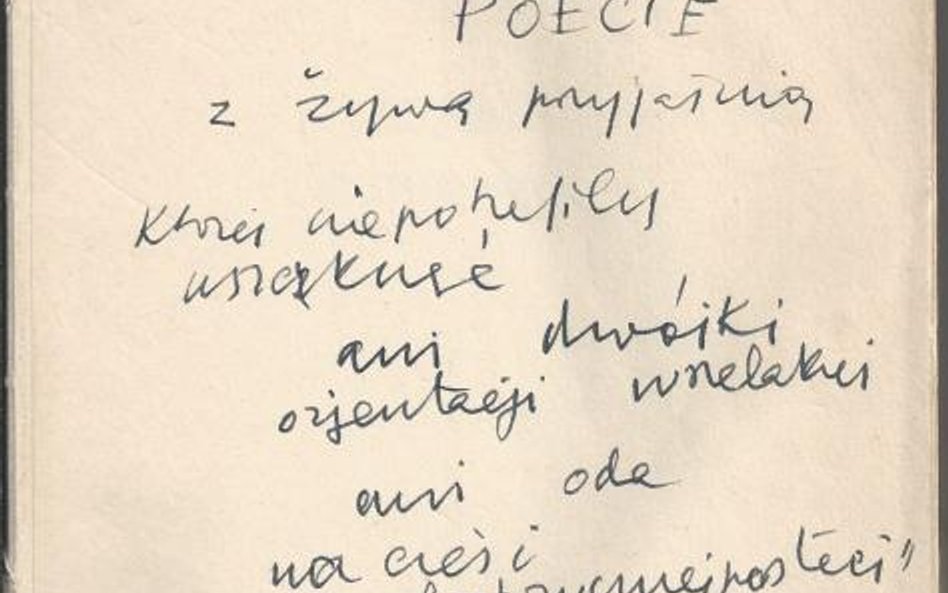 POECIE
z żywą przyjaźnią
której niepotrafiły
uszczknąć
ani dwójki
orjentacji wszelakiej
ani oda
na cześć
postaci"